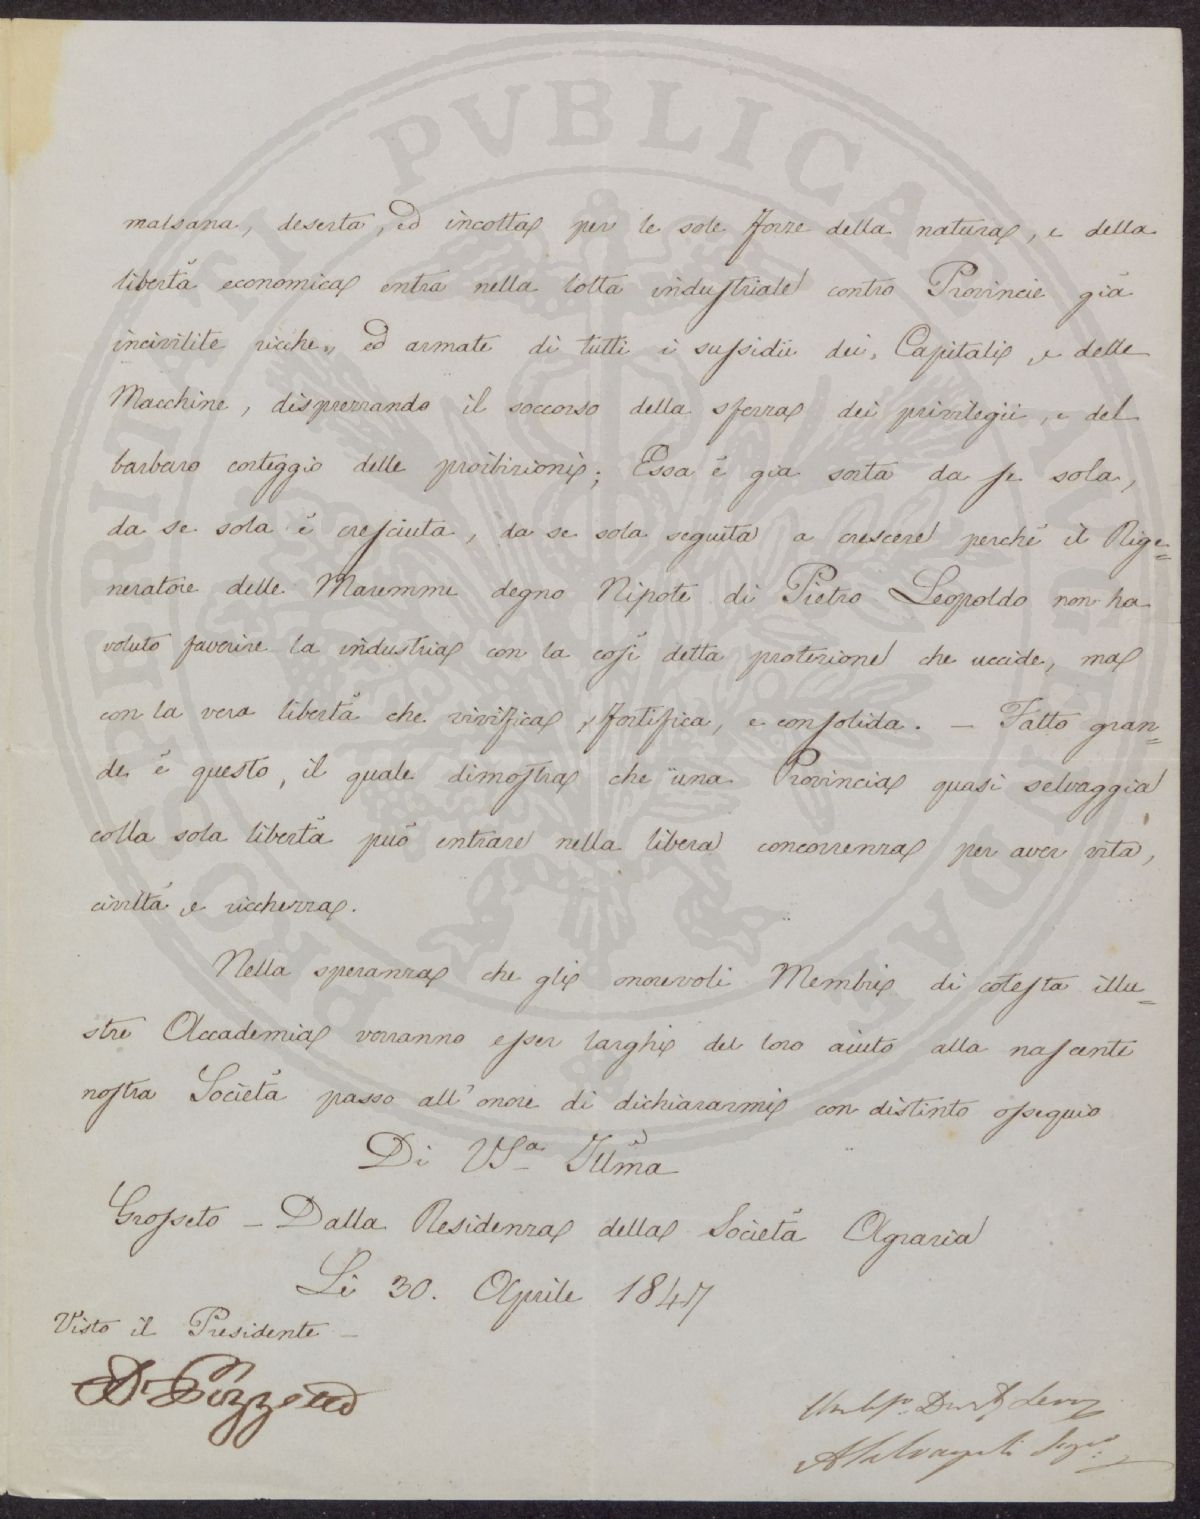 malsana, deserta, ed incolta per le sole forze della natura, e della
libertà economica entra nella lotta industriale contro Provincie già
incivilite ricche, ed armate di tutti i sussidii dei Capitali, e delle
Macchine, disprezzando il soccorso della sferza dei privilegii, e del
barbaro corteggio delle proibizioni; Essa è già sorta da se sola,
da se sola è cresciuta, da se sola seguita a crescere perchè il Rige=
neratore delle Maremme degno Nipote di Pietro Leopoldo non ha
voluto favorire la industria con la così detta protezione che uccide, ma
con la vera libertà che vivifica, fortifica, e consolida. — Fatto gran=
de è questo, il quale dimostra che una Provincia quasi selvaggia
colla sola libertà può entrare nella libera concorrenza per aver vita,
civiltà, e ricchezza.
Nella speranza che gli onorevoli Membri di cotesta illu=
stre Accademia vorranno esser larghi del loro aiuto alla nascente
nostra Società passo all'onore di dichiararmi con distinto ossequio
Di VSª Illma
Grosseto — Dalla Residenza della Società Agraria
Li 30. Aprile 1847
Visto il Presidente —
PROSPERITATI PVBLICAE